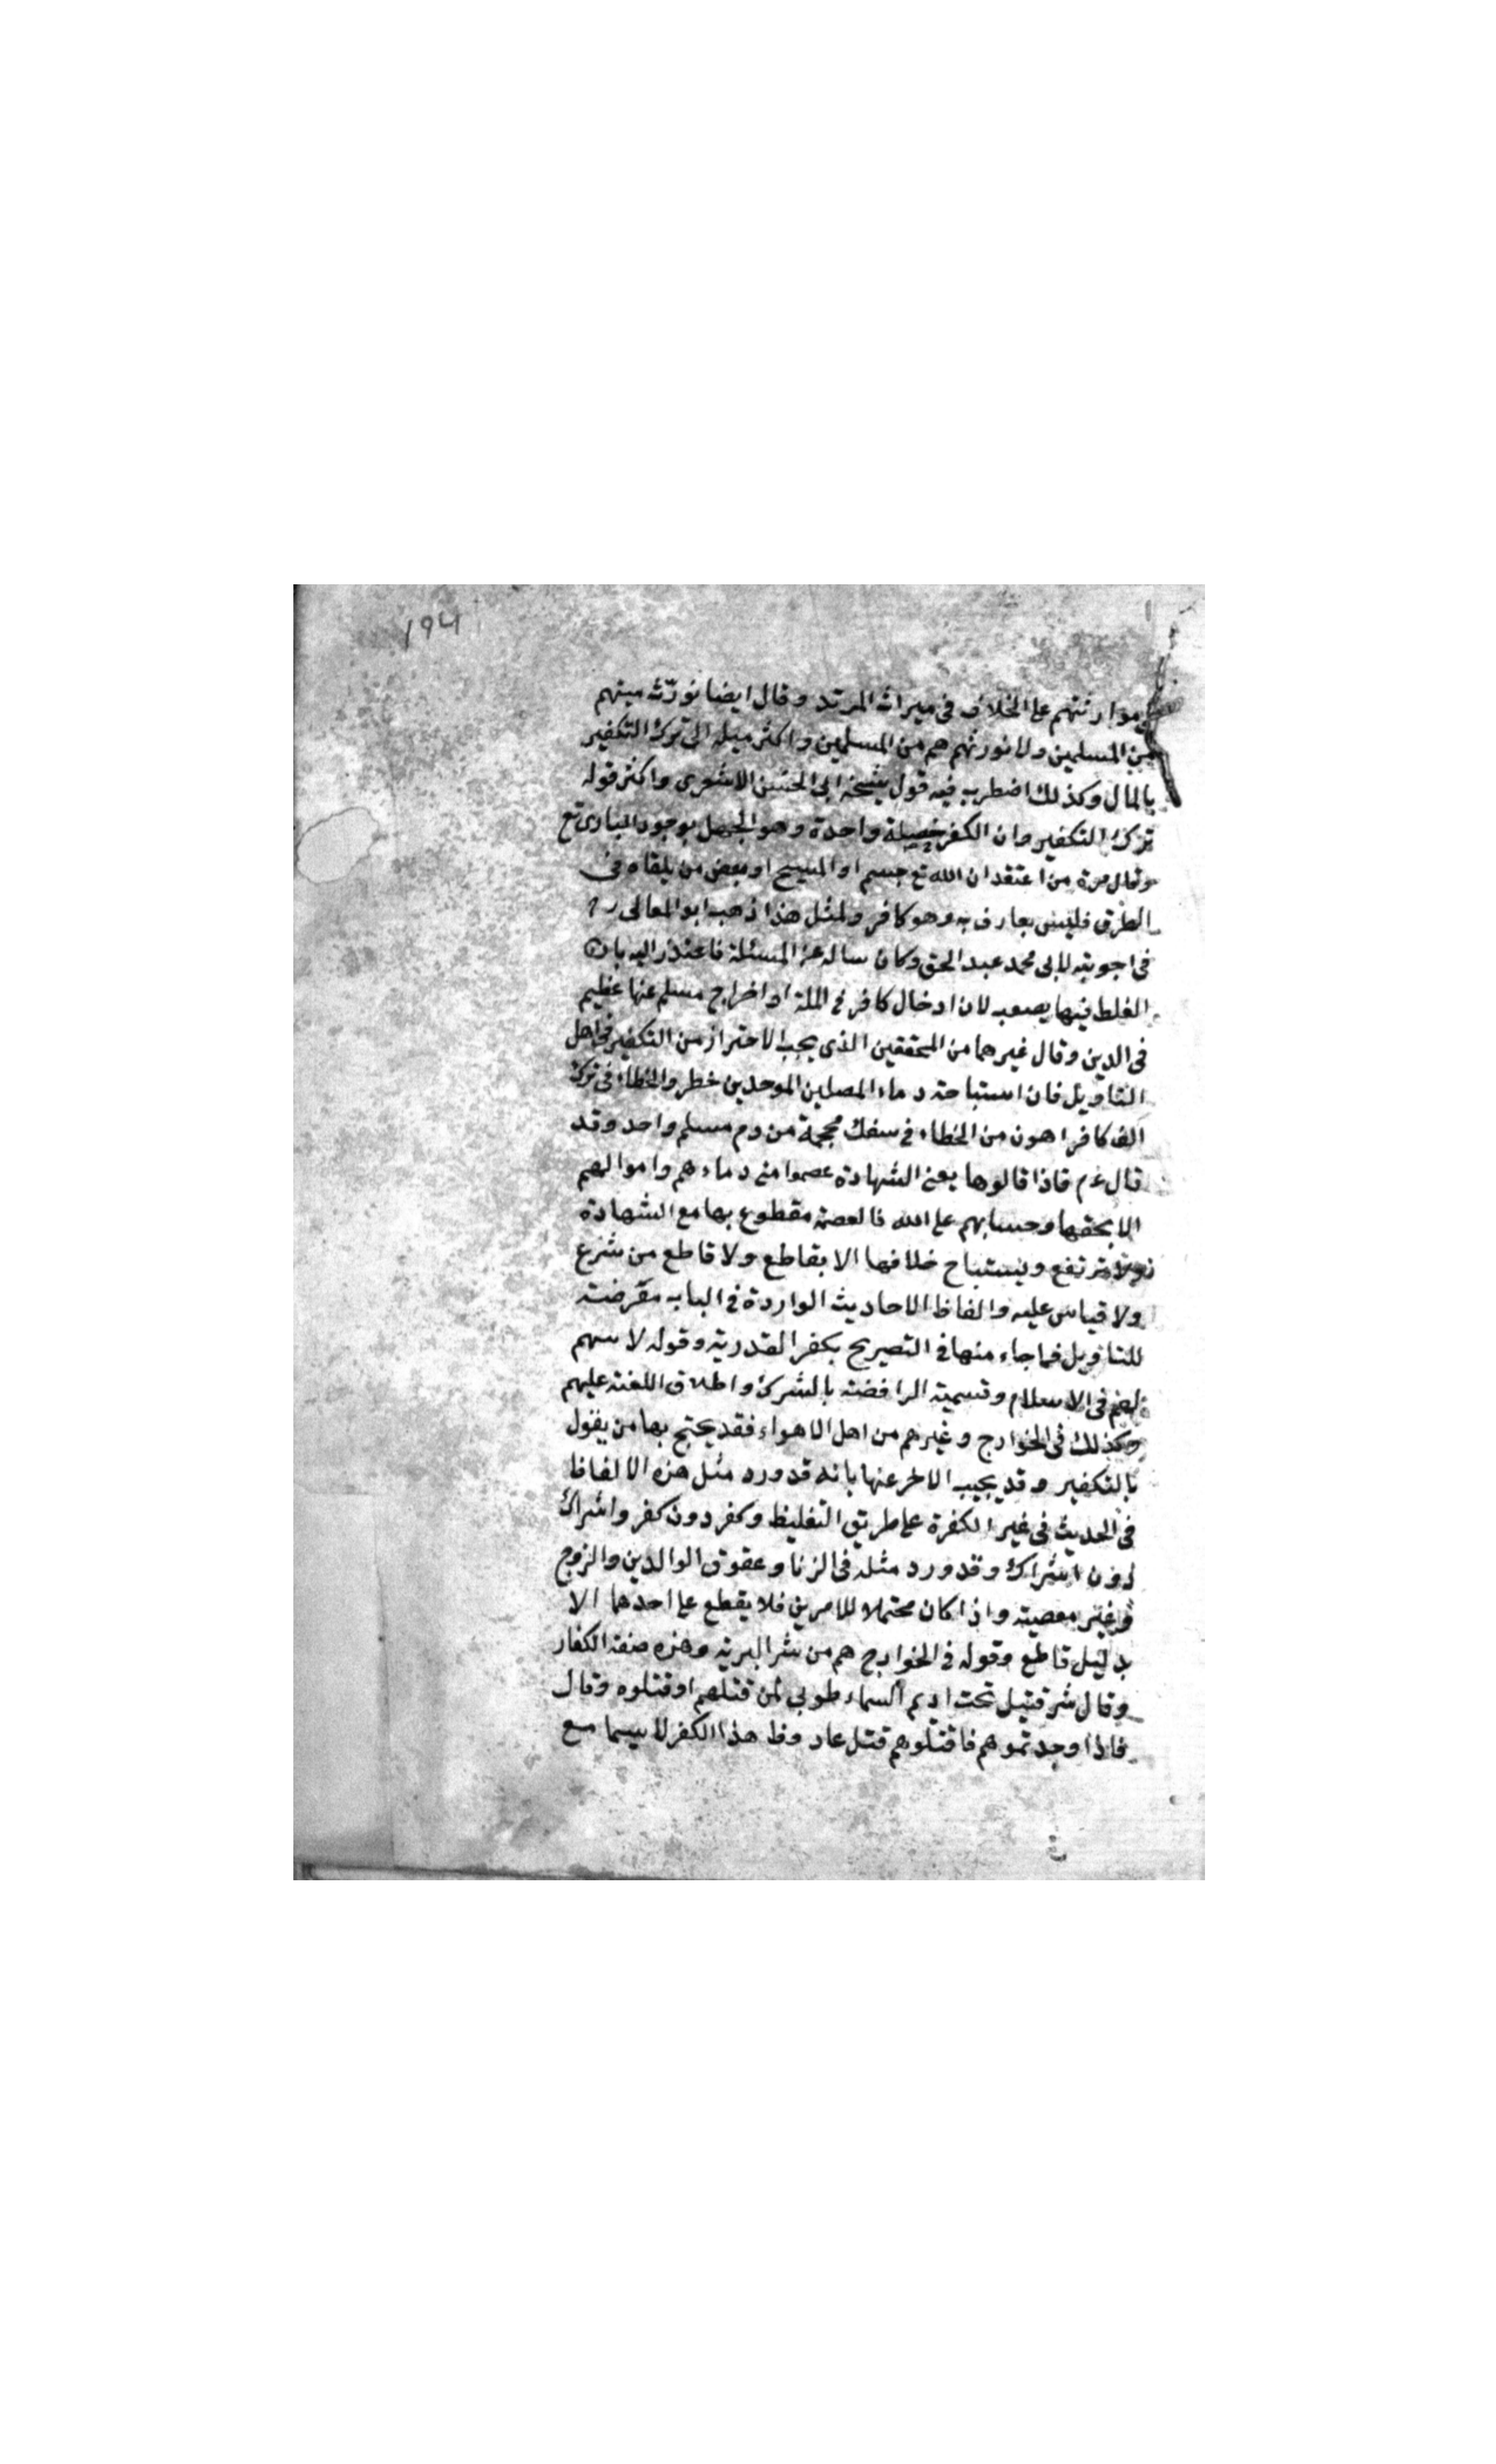 ١٩٤
وموارثتهم على الخلاف في ميراث المرتد وقال ايضا نورّث ميتهم
من المسلمين ولا نورثهم هم من المسلمين واكثر ميله الى ترك التكفير
بالمال وكذلك اضطرب فيه قول شيخه ابى الحسن الاشعرى واكثر قوله
ترك التكفير وان الكفر خصلة واحدة وهو الجهل بوجود البارى تع
وقال مرة من اعتقد ان الله تع جسم او المسيح او بعض من يلقاه فى
الطرق فليس بعارف به وهو كافر ولمثل هذا ذهب ابو المعالى
فى اجوبته لابى محمد عبد الحق وكان ساله عن المسئلة فاعتذر اليه بان
الغلط فيها يصعب لان ادخال كافر في الملة او اخراج مسلم عنها عظيم
فى الدين وقال غيرهما من المحققين الذى يجب الاحتراز من التكفير فى اهل
التاويل فان استباحة دماء المصلين الموحدين خطر والخطاء فى ترك
الف كافر اهون من الخطاء في سفك محجمة من دم مسلم واحد وقد
قال عم فاذا قالوها يعنى الشهادة عصموا منى دماءهم واموالهم
الا بحقها وحسابهم على الله فالعصمة مقطوع بها مع الشهادة
ولا ترتفع ويستباح خلافها الا بقاطع ولا قاطع من شرع
ولا قياس عليه والفاظ الاحاديث الواردة في الباب مقرضة
للتاويل فما جاء منها في التصريح بكفر القدرية وقوله لا سهم
لهم فى الاسلام وتسمية الرافضة بالشرك واطلاق اللعنة عليهم
وكذلك فى الخوارج وغيرهم من اهل الاهواء فقد يحتج بها من يقول
بالتكفير وقد يجيب الاخر عنها بانه قد ورد مثل هذه الالفاظ
فى الحديث فى غير الكفرة على طريق التغليظ وكفر دون كفر واشراك
دون اشراك وقد ورد مثله فى الزنا وعقوق الوالدين والزوج
وغير معصية واذا كان محتملا للامرين فلا يقطع على احدهما الا
بدليل قاطع وقوله في الخوارج هم من شر البرية وهذه صفة الكفار
وقال شر قتيل تحت اديم السماء طوبى لمن قتلهم او قتلوه وقال
فاذا وجدتموهم فاقتلوهم قتل عاد وظ هذا الكفر لا سيما مع